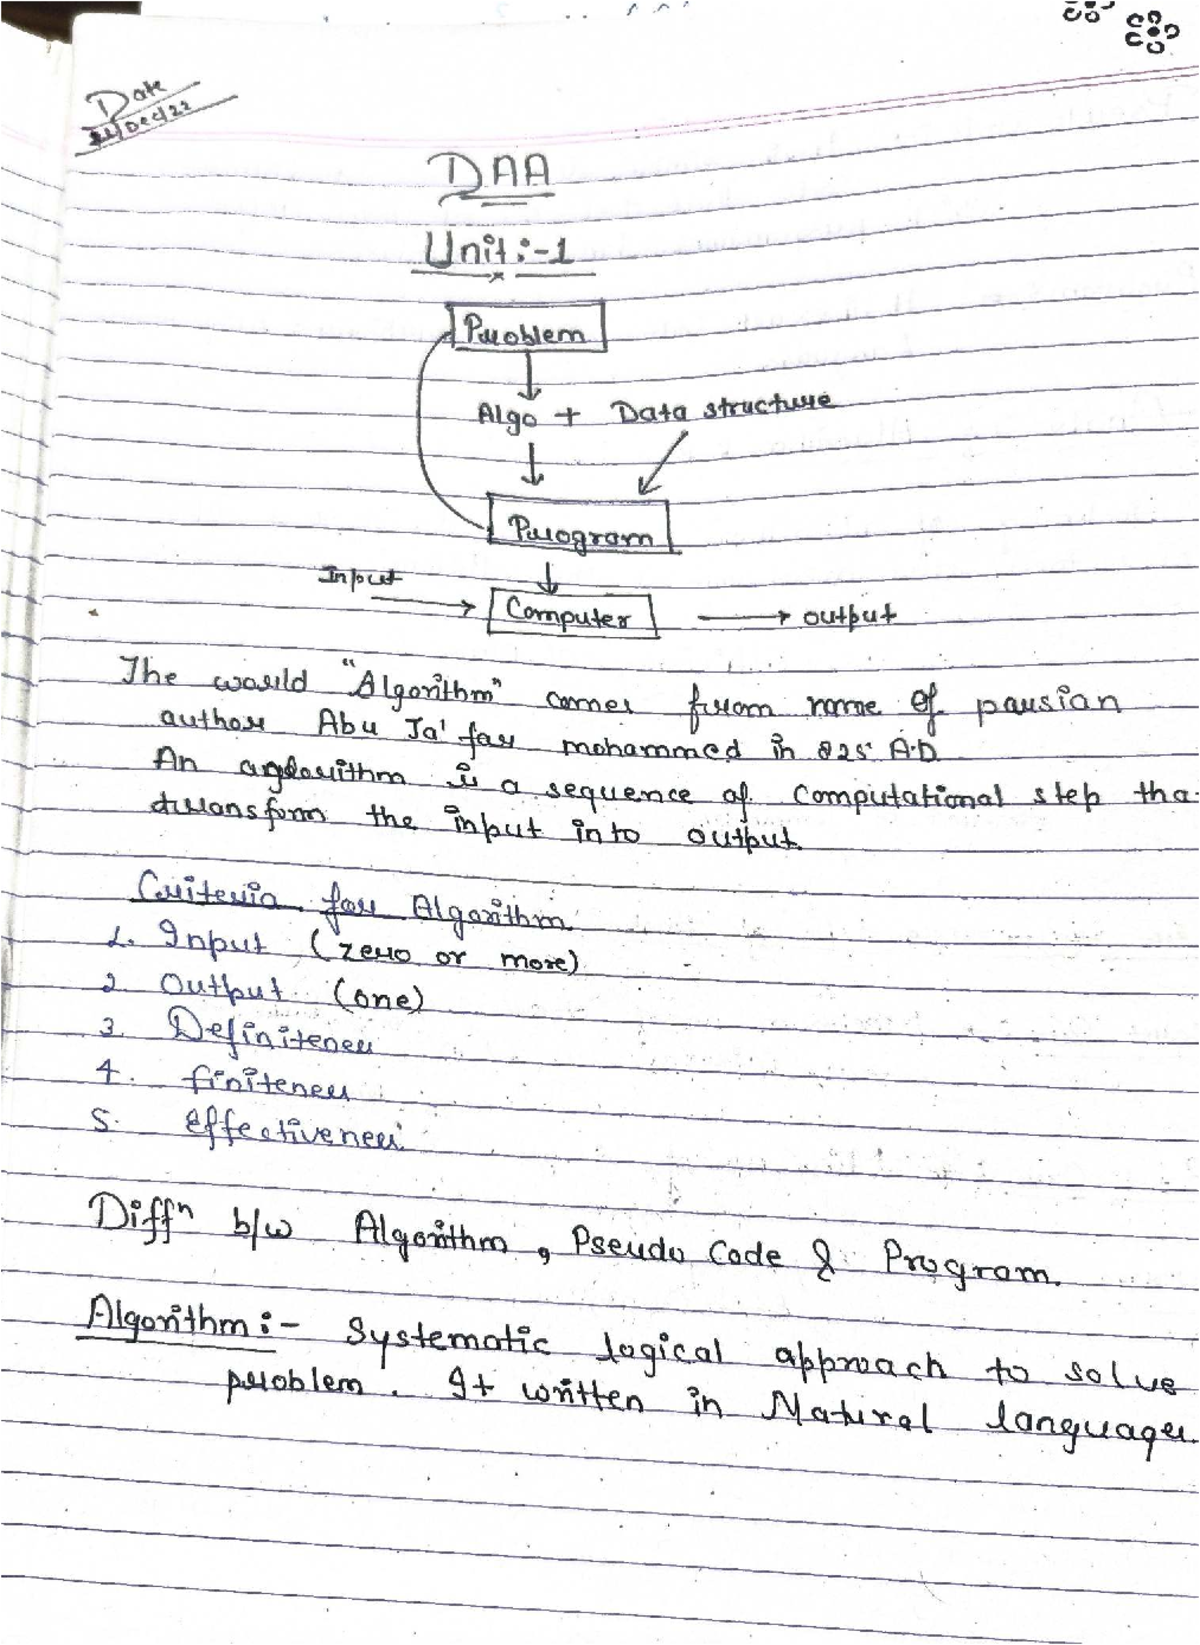 Date
22/Dec/22
DAA
Unit:-1
Problem
Algo + Data structure
Program
Input
Computer
output
The world "Algorithm" comes from name of parsian
author Abu Ja'far mohammed in 825 A.D.
An algorithm is a sequence of computational step tha
transform the input into output.
Criteria for Algorithm
1. Input (zero or more)
2. Output (one)
3. Definiteness
4. finiteness
5. effectiveness.
Diffn b/w Algorithm, Pseudo Code & Program.
Algorithm:- Systematic logical approach to solve
problem. It written in Natural languages.